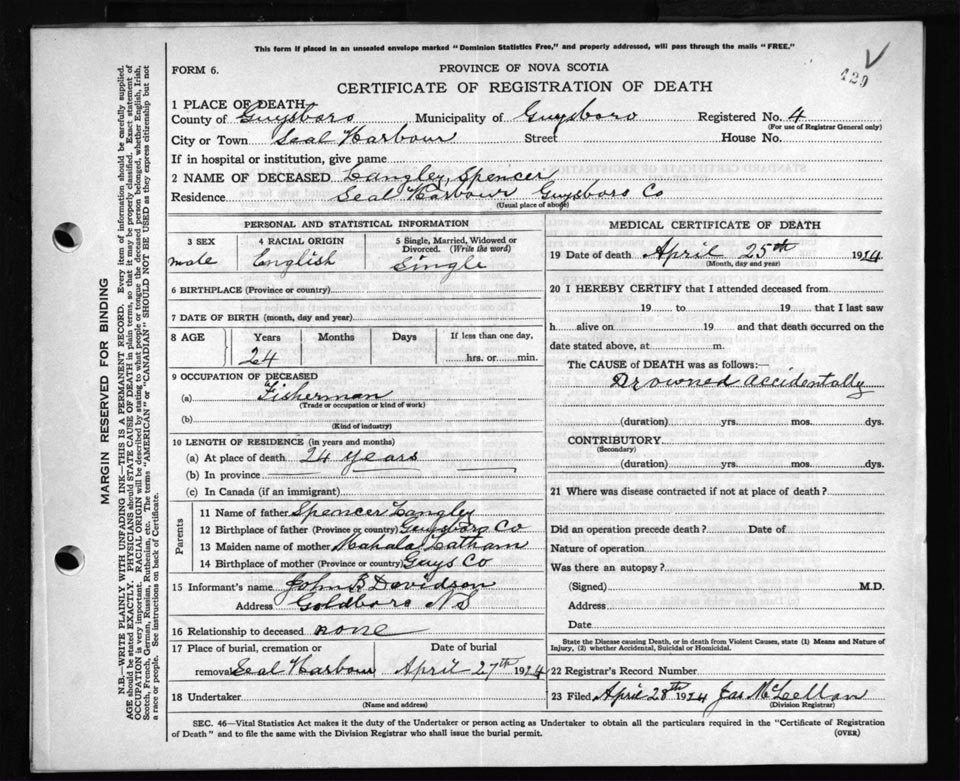 This form if placed in an unsealed envelope marked "Dominion Statistics Free," and properly addressed, will pass through the mails "FREE."
420
FORM 6.
PROVINCE OF NOVA SCOTIA
CERTIFICATE OF REGISTRATION OF DEATH
1 PLACE OF DEATH
County of Guysboro Municipality of Guysboro Registered No. 4
(For use of Registrar General only)
City or Town Seal Harbour Street House No.
If in hospital or institution, give name
2 NAME OF DECEASED Langley, Spencer
Residence Seal Harbour Guysboro Co
(Usual place of abode)
PERSONAL AND STATISTICAL INFORMATION
3 SEX 4 RACIAL ORIGIN 5 Single, Married, Widowed or Divorced. (Write the word)
male English Single
6 BIRTHPLACE (Province or country)
7 DATE OF BIRTH (month, day and year)
8 AGE Years Months Days If less than one day,
24 hrs. or min.
9 OCCUPATION OF DECEASED
(a) Fisherman
(Trade or occupation or kind of work)
(b)
(Kind of industry)
10 LENGTH OF RESIDENCE (in years and months)
(a) At place of death 24 years
(b) In province
(c) In Canada (if an immigrant)
Parents
11 Name of father Spencer Langley
12 Birthplace of father (Province or country) Guysboro Co
13 Maiden name of mother Mahala Latham
14 Birthplace of mother (Province or country) Guys Co
15 Informant's name John B Davidson
Address Goldboro N S
16 Relationship to deceased none
17 Place of burial, cremation or Date of burial
removal Seal Harbour April 27th 1924
18 Undertaker
(Name and address)
MEDICAL CERTIFICATE OF DEATH
19 Date of death April 25th 1924
(Month, day and year)
20 I HEREBY CERTIFY that I attended deceased from
19 to 19 that I last saw
h alive on 19 and that death occurred on the
date stated above, at m.
The CAUSE of DEATH was as follows:
Drowned accidentally
(duration) yrs. mos. dys.
CONTRIBUTORY
(Secondary)
(duration) yrs. mos. dys.
21 Where was disease contracted if not at place of death?
Did an operation precede death? Date of
Nature of operation
Was there an autopsy?
(Signed) M.D.
Address
Date
State the Disease causing Death, or in death from Violent Causes, state (1) Means and Nature of
Injury, (2) whether Accidental, Suicidal or Homicidal.
22 Registrar's Record Number
23 Filed April 28th 1924 Jas McLellan
(Division Registrar)
SEC. 46—Vital Statistics Act makes it the duty of the Undertaker or person acting as Undertaker to obtain all the particulars required in the "Certificate of Registration
of Death" and to file the same with the Division Registrar who shall issue the burial permit.
(OVER)
MARGIN RESERVED FOR BINDING
N.B.—WRITE PLAINLY WITH UNFADING INK—THIS IS A PERMANENT RECORD. Every item of information should be carefully supplied.
AGE should be stated EXACTLY. PHYSICIANS should STATE CAUSE OF DEATH in plain terms, so that it may be properly classified. Exact statement of
OCCUPATION is very important. RACIAL ORIGIN will be described by stating to what people or tongue the deceased person belonged, whether English, Irish,
Scotch, French, German, Russian, Ruthenian, etc. The terms "AMERICAN" or "CANADIAN" SHOULD NOT BE USED as they express citizenship but not
a race or people. See instructions on back of Certificate.